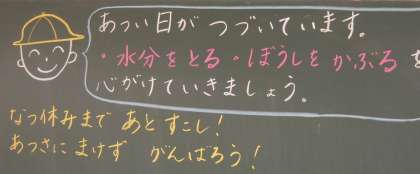 あつい日が つづいています。
・水分をとる・ぼうしを かぶる を
心がけていきましょう。
なつ休みまで あと すこし!
あつさに まけず がんばろう!